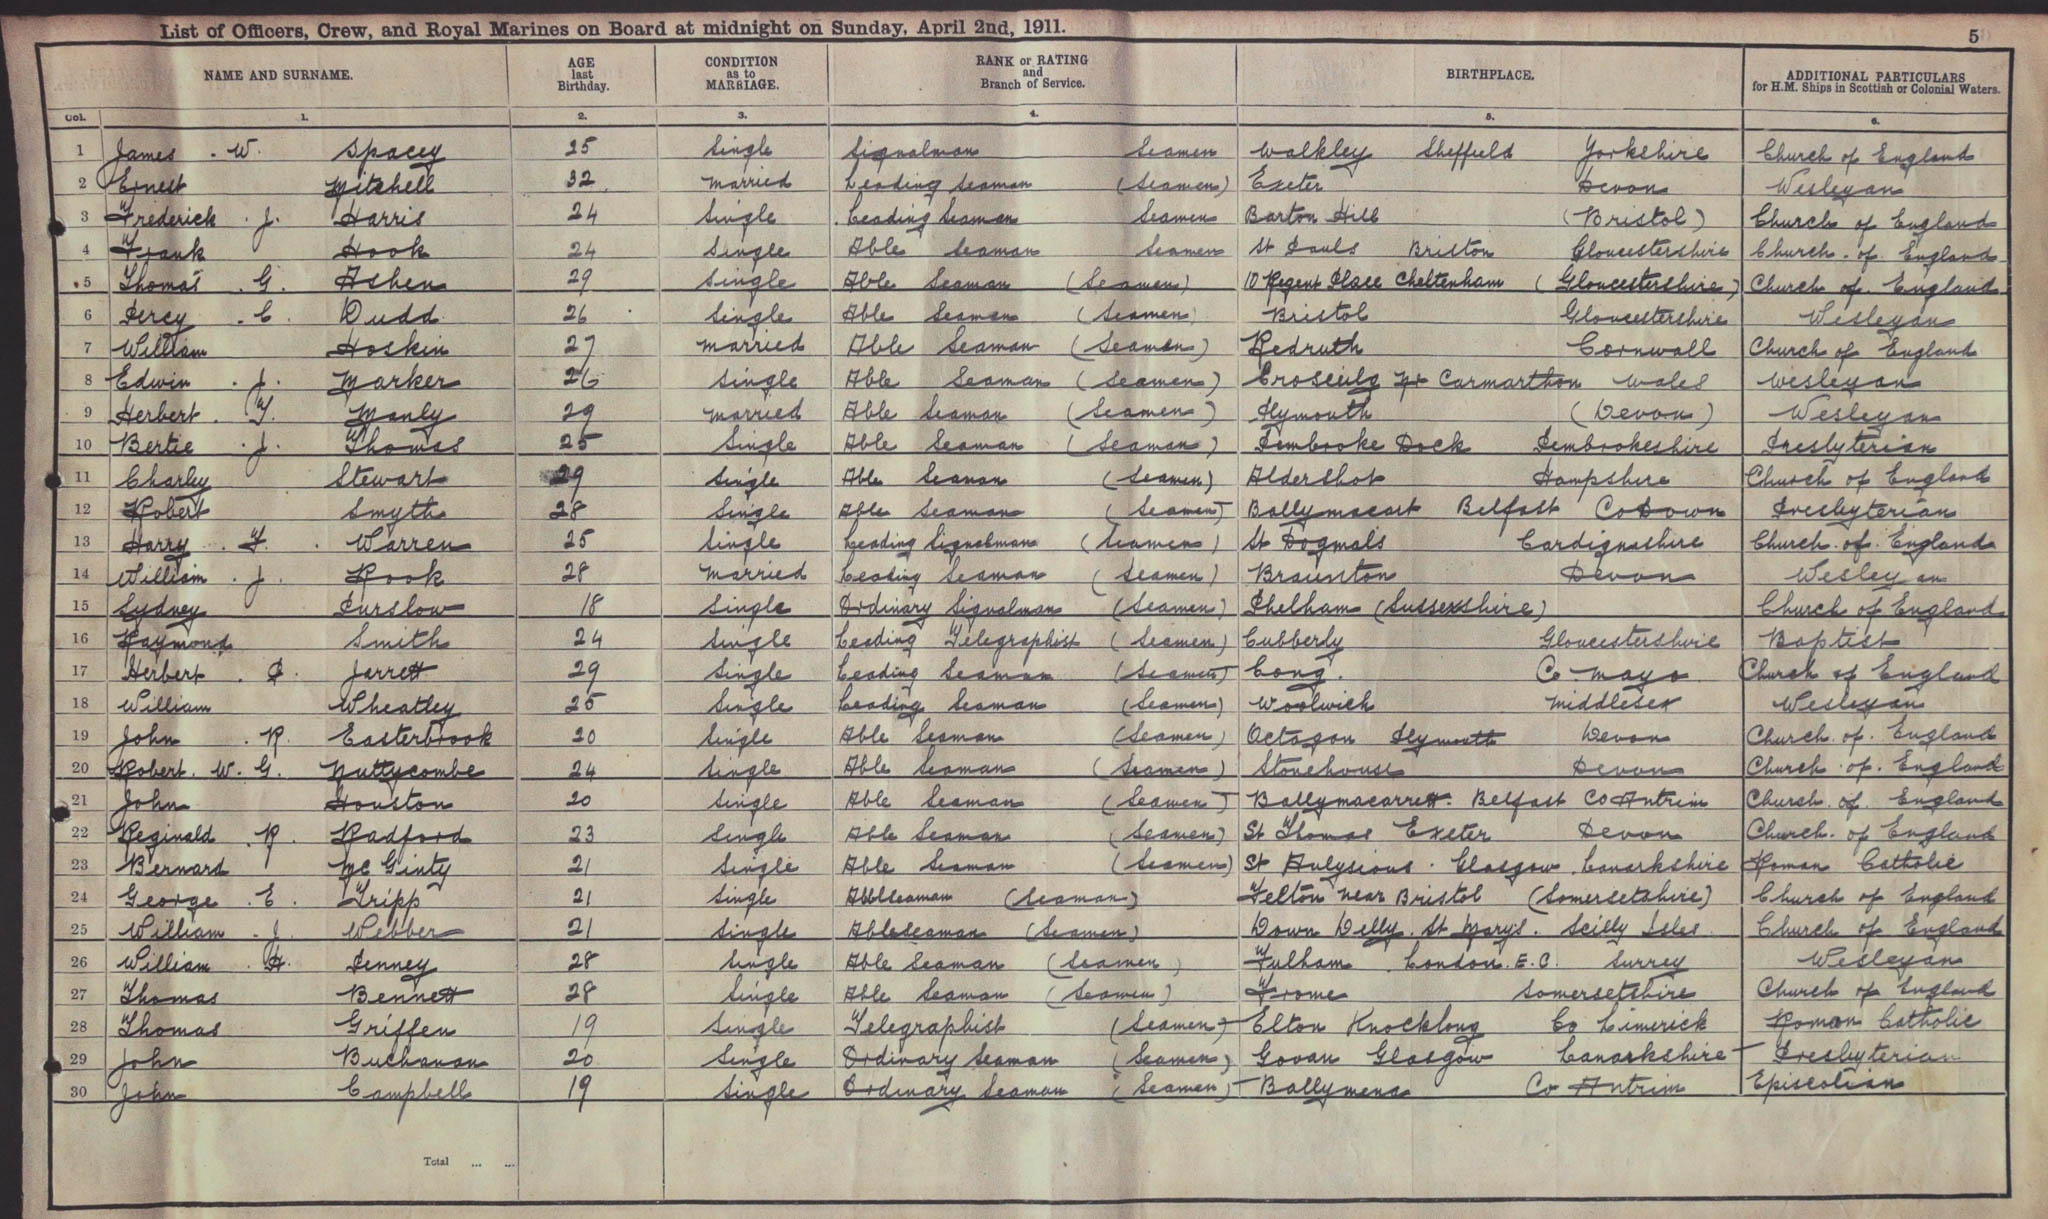 List of Officers, Crew, and Royal Marines on Board at midnight on Sunday, April 2nd, 1911. 5
NAME AND SURNAME. AGE last Birthday. CONDITION as to MARRIAGE. RANK or RATING and Branch of Service. BIRTHPLACE. ADDITIONAL PARTICULARS for H.M. Ships in Scottish or Colonial Waters.
Col. 1. 2. 3. 4. 5. 6.
1 James . W. Spacey 25 Single Signalman Seamen Walkley Sheffield Yorkshire Church of England
2 Ernest Mitchell 32 Married Leading Seaman (Seamen) Exeter Devon Wesleyan
3 Frederick . J. Harris 24 Single Leading Seaman Seamen Barton Hill (Bristol) Church of England
4 Frank Hook 24 Single Able Seaman Seamen St Pauls Bristol Gloucestershire Church of England
5 Thomas . G. Ashen 29 Single Able Seaman (Seamen) 10 Regent Place Cheltenham (Gloucestershire) Church of England
6 Percy . C. Dudd 26 Single Able Seaman (Seamen) Bristol Gloucestershire Wesleyan
7 William Hoskin 27 Married Able Seaman (Seamen) Redruth Cornwall Church of England
8 Edwin . J. Marker 26 Single Able Seaman (Seamen) Nr Carmarthon Wales Wesleyan
9 Herbert . F. Manly 29 Married Able Seaman (Seamen) Plymouth (Devon) Wesleyan
10 Bertie . J. Thomas 25 Single Able Seaman (Seaman) Pembroke Dock Pembrokeshire Presbyterian
11 Charley Stewart 29 Single Able Seaman (Seamen) Aldershot Hampshire Church of England
12 Robert Smyth 28 Single Able Seaman (Seamen) Ballymacart Belfast Co Down Presbyterian
13 Harry . F. Warren 25 Single Leading Signalman (Seamen) St Dogmals Cardiganshire Church of England
14 William . J. Rook 28 Married Leading Seaman (Seamen) Braunton Devon Wesleyan
15 Sydney Purslow 18 Single Ordinary Signalman (Seamen) Phelham (Sussexshire) Church of England
16 Raymond Smith 24 Single Leading Telegraphist (Seamen) Cubberly Gloucestershire Baptist
17 Herbert . P. Jarrett 29 Single Leading Seaman (Seamen) Cong. Co Mayo Church of England
18 William Wheatley 25 Single Leading Seaman (Seamen) Woolwich Middlesex Wesleyan
19 John . R. Easterbrook 20 Single Able Seaman (Seamen) Octagon Plymouth Devon Church of England
20 Robert . W. G. Nuttycombe 24 Single Able Seaman (Seamen) Stonehouse Devon Church of England
21 John Houston 20 Single Able Seaman (Seamen) Ballymacarrett. Belfast Co Antrim Church of England
22 Reginald . R. Radford 23 Single Able Seaman (Seamen) St Thomas Exeter Devon Church of England
23 Bernard McGinty 21 Single Able Seaman (Seamen) St Aulysious Glasgow Lanarkshire Roman Catholic
24 George . E. Tripp 21 Single Ableseaman (Seaman) Felton near Bristol (Somersetshire) Church of England
25 William . J. Webber 21 Single Ableseaman (Seamen) Down Delly. St Mary's. Scilly Isles Church of England
26 William . H. Penney 28 Single Able Seaman (Seamen) Fulham London. E.C. Surrey Wesleyan
27 Thomas Bennett 28 Single Able Seaman (Seamen) Frome Somersetshire Church of England
28 Thomas Griffen 19 Single Telegraphist (Seamen) Elton Knocklong Co Limerick Roman Catholic
29 John Buchanan 20 Single Ordinary Seaman (Seamen) Govan Glasgow Lanarkshire Presbyterian
30 John Campbell 19 Single Ordinary Seaman (Seamen) Ballymena Co Antrim Episcolian
Total ... ...